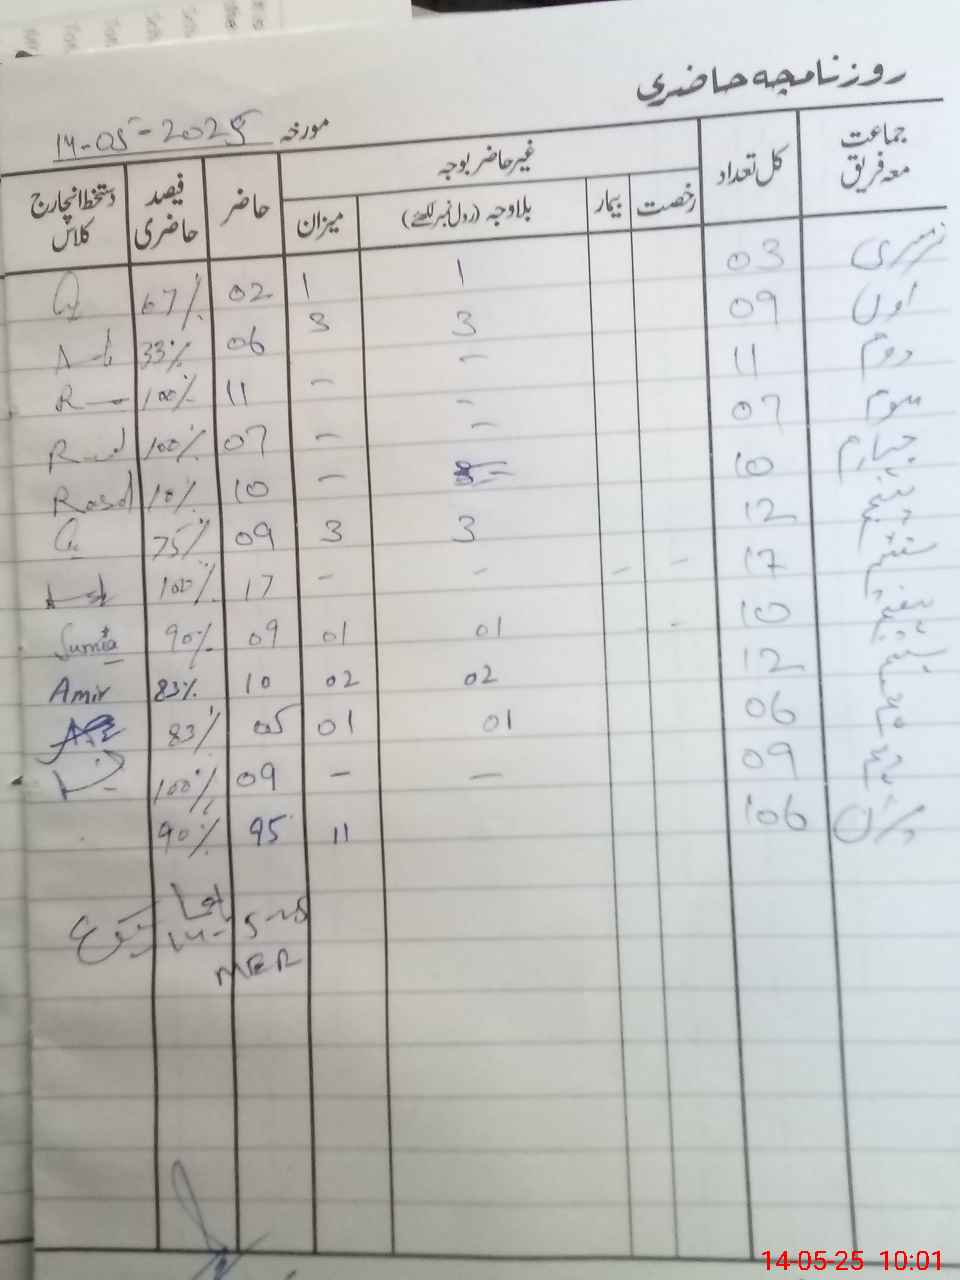 روزنامچہ حاضری
مورخہ 14-05-2025
جماعت معہ فریق | کل تعداد | غیر حاضر بوجہ | حاضر | فیصد حاضری | دستخط انچارج کلاس
رخصت | بیمار | بلاوجہ (رول نمبر لکھئے) | میزان
نرسری 03 1 1 02 67%
اول 09 3 3 06 33%
دوم 11 - - 11 100% R
سوم 07 - - 07 100%
چہارم 10 - - 10 10% Rasol
پنجم 12 3 3 09 75%
ششم 17 - - - - 17 100%
ہفتم 10 - 01 01 09 90% Sumia
ہشتم 12 02 02 10 83% Amir
نہم 06 01 01 05 83%
دہم 09 - - 09 100%
میزان 106 11 95 90%
14-5-25
MER
14-05-25 10:01